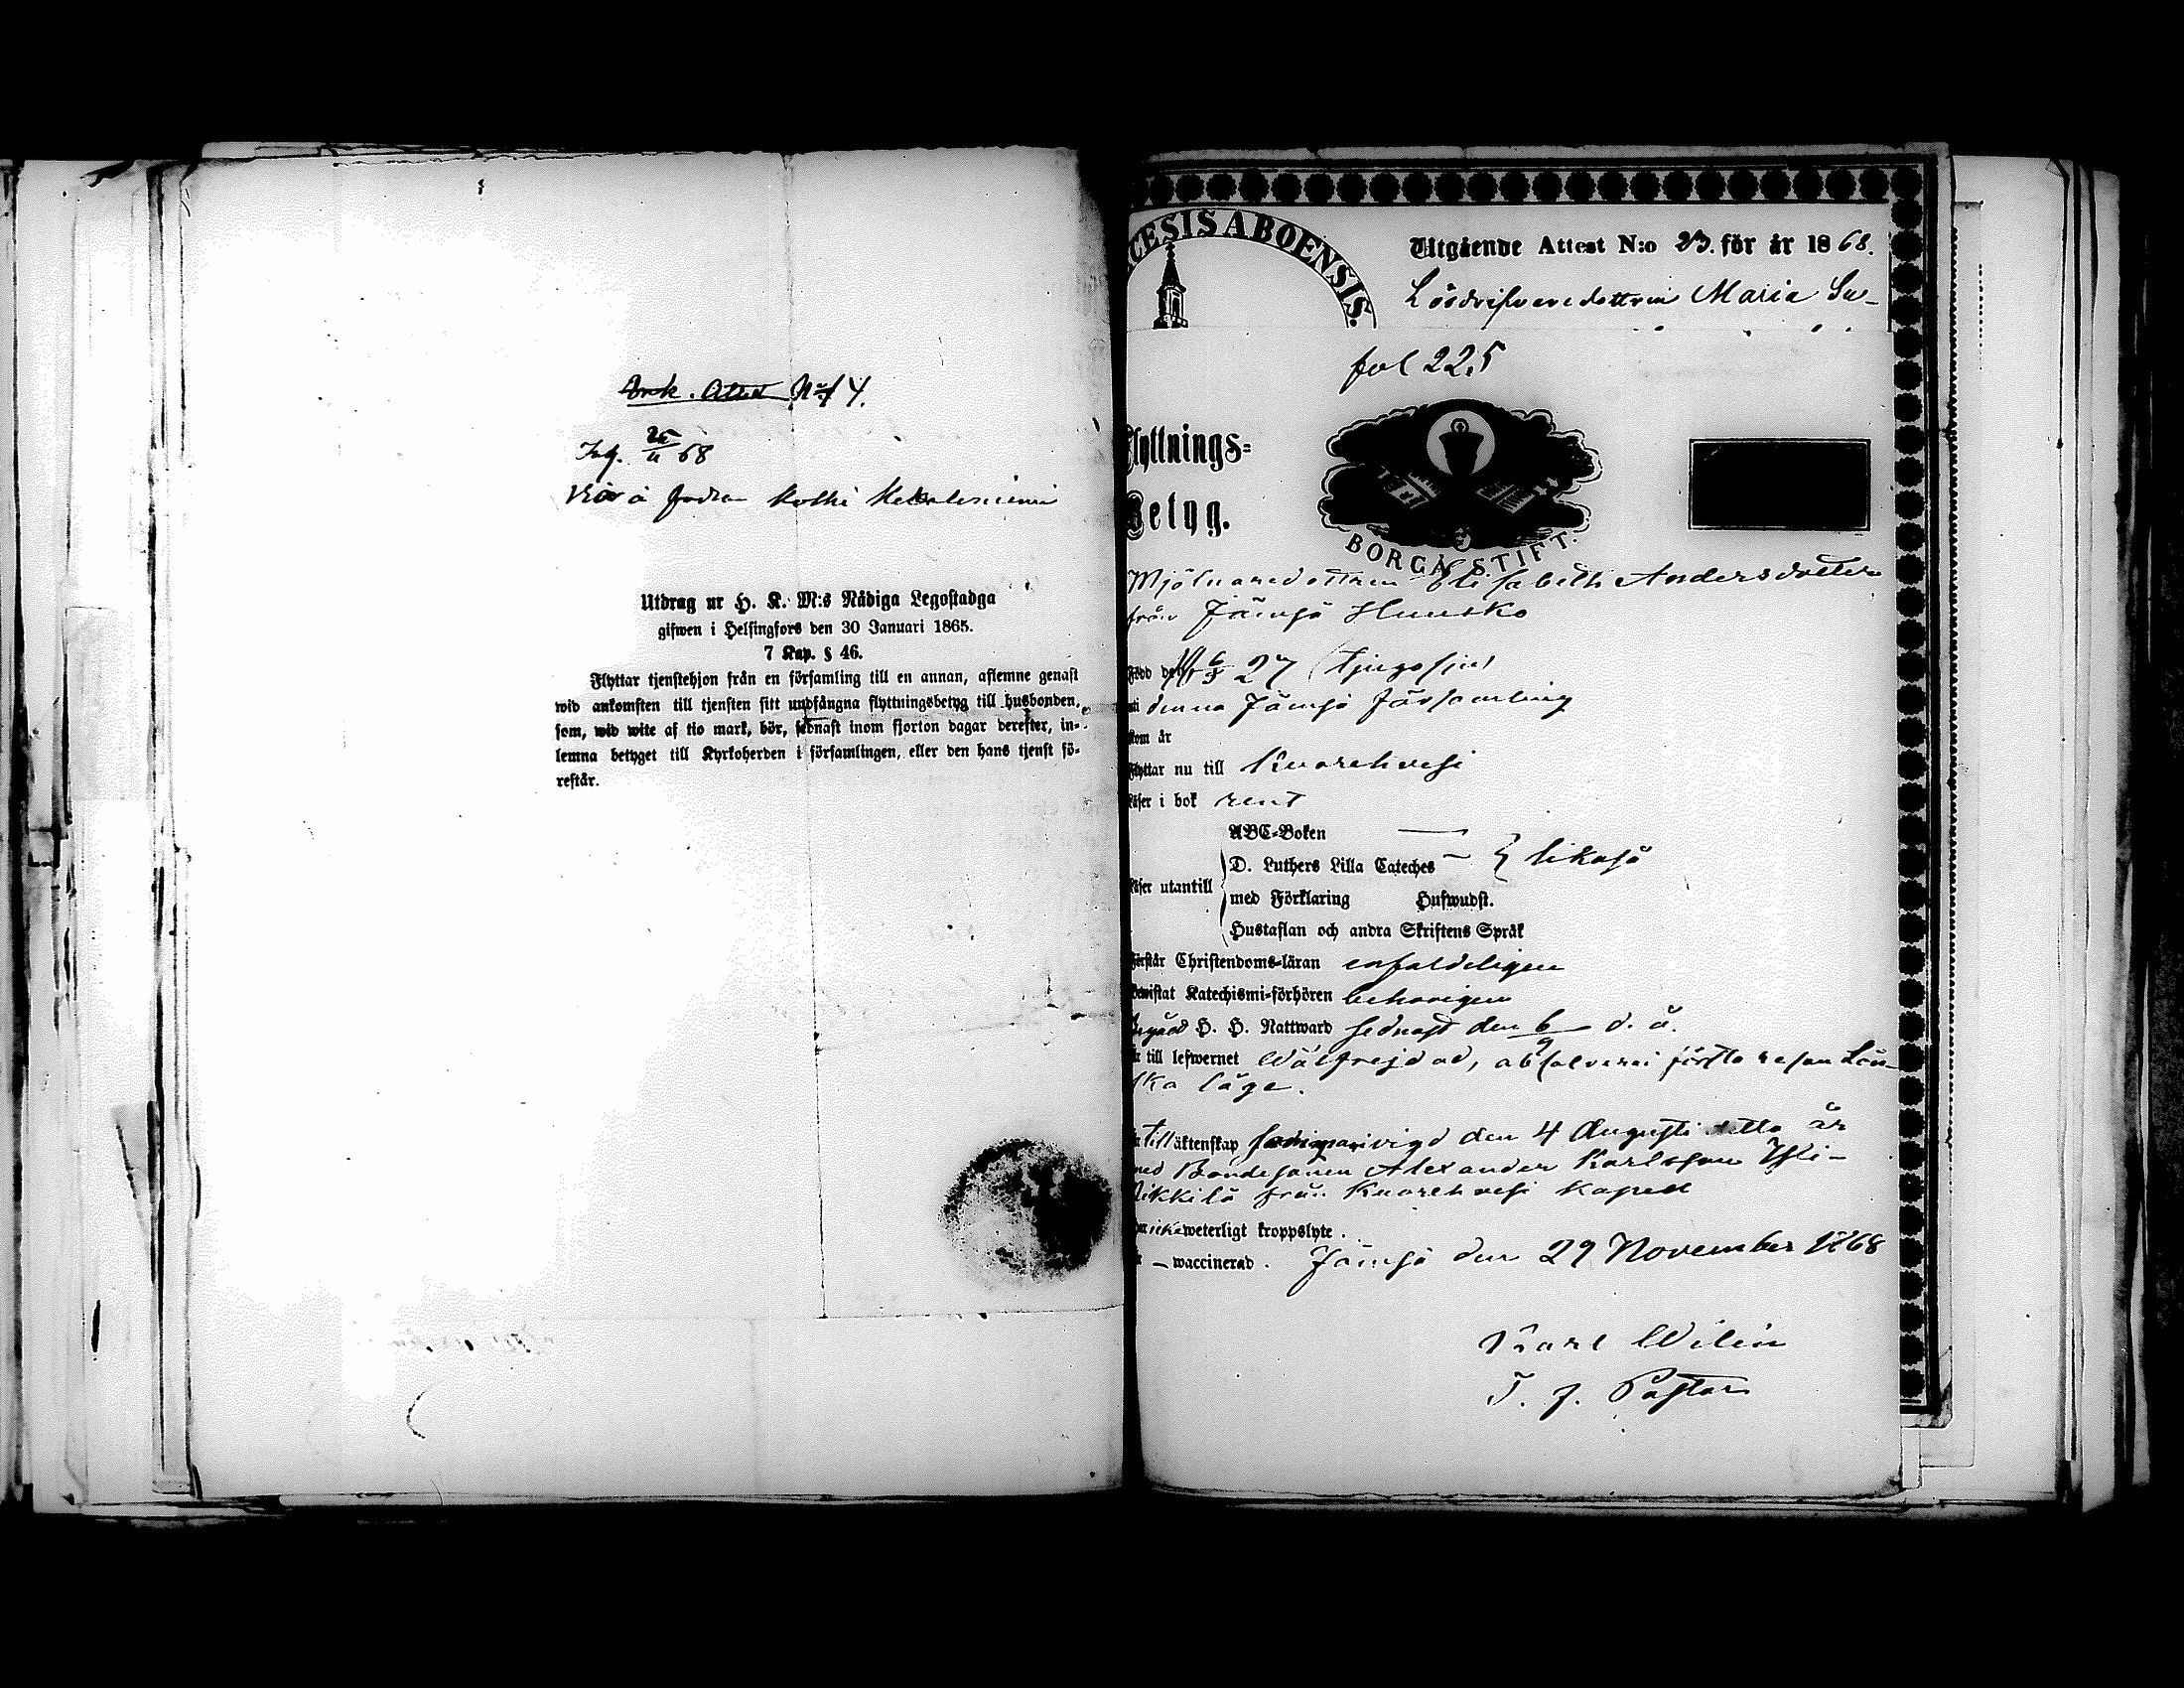 Ank. Attest N:o 4.
Ing. 25/11 68
Utdrag ur H. K. M:s Nådiga Legostadga
gifwen i Helsingfors den 30 Januari 1865.
7 Kap. § 46.
Flyttar tjenstehjon från en församling till en annan, aflemne genast
wid ankomsten till tjensten sitt undfångna flyttningsbetyg till husbonden,
som, wid wite af tio mark, bör, sednast inom fjorton dagar derefter, in-
lemna betyget till Kyrkoherden i församlingen, eller den hans tjenst fö-
restår.
CESIS ABOENSIS.
Utgående Attest N:o 23. för år 1868.
Lösdrifvaredottren Maria Su-
fol 225
Flyttnings-
Betyg.
BORGÅ STIFT.
Mjölnaredottren Elisabeth Andersdotter
från Jämsä Hunsko
Född den 27 (tjugosju)
uti denna Jämsä Församling
kom år
Flyttar nu till Kuorehvesi
Läser i bok rent
ABC-Boken
D. Luthers Lilla Cateches } likaså
Läser utantill
med Förklaring Hufwudst.
Hustaflan och andra Skriftens Språk
Förstår Christendoms-läran enfaldeligen
Bewistat Katechismi-förhören behörigen
Begådd H. H. Nattward sednast den 6/9 d. å.
Är till lefwernet Wälfrejdad, absolverad första resan Lön-
ska läge.
Är Till äktenskap vigd den 4 Augusti detta år
med Bondesonen Alexander Karlsson Yli-
Nikkilä från Kuorehvesi Kapell
Har icke weterligt kroppslyte.
Är – waccinerad. Jämsä den 29 November 1868
Karl Wilén
T. f. Pastor